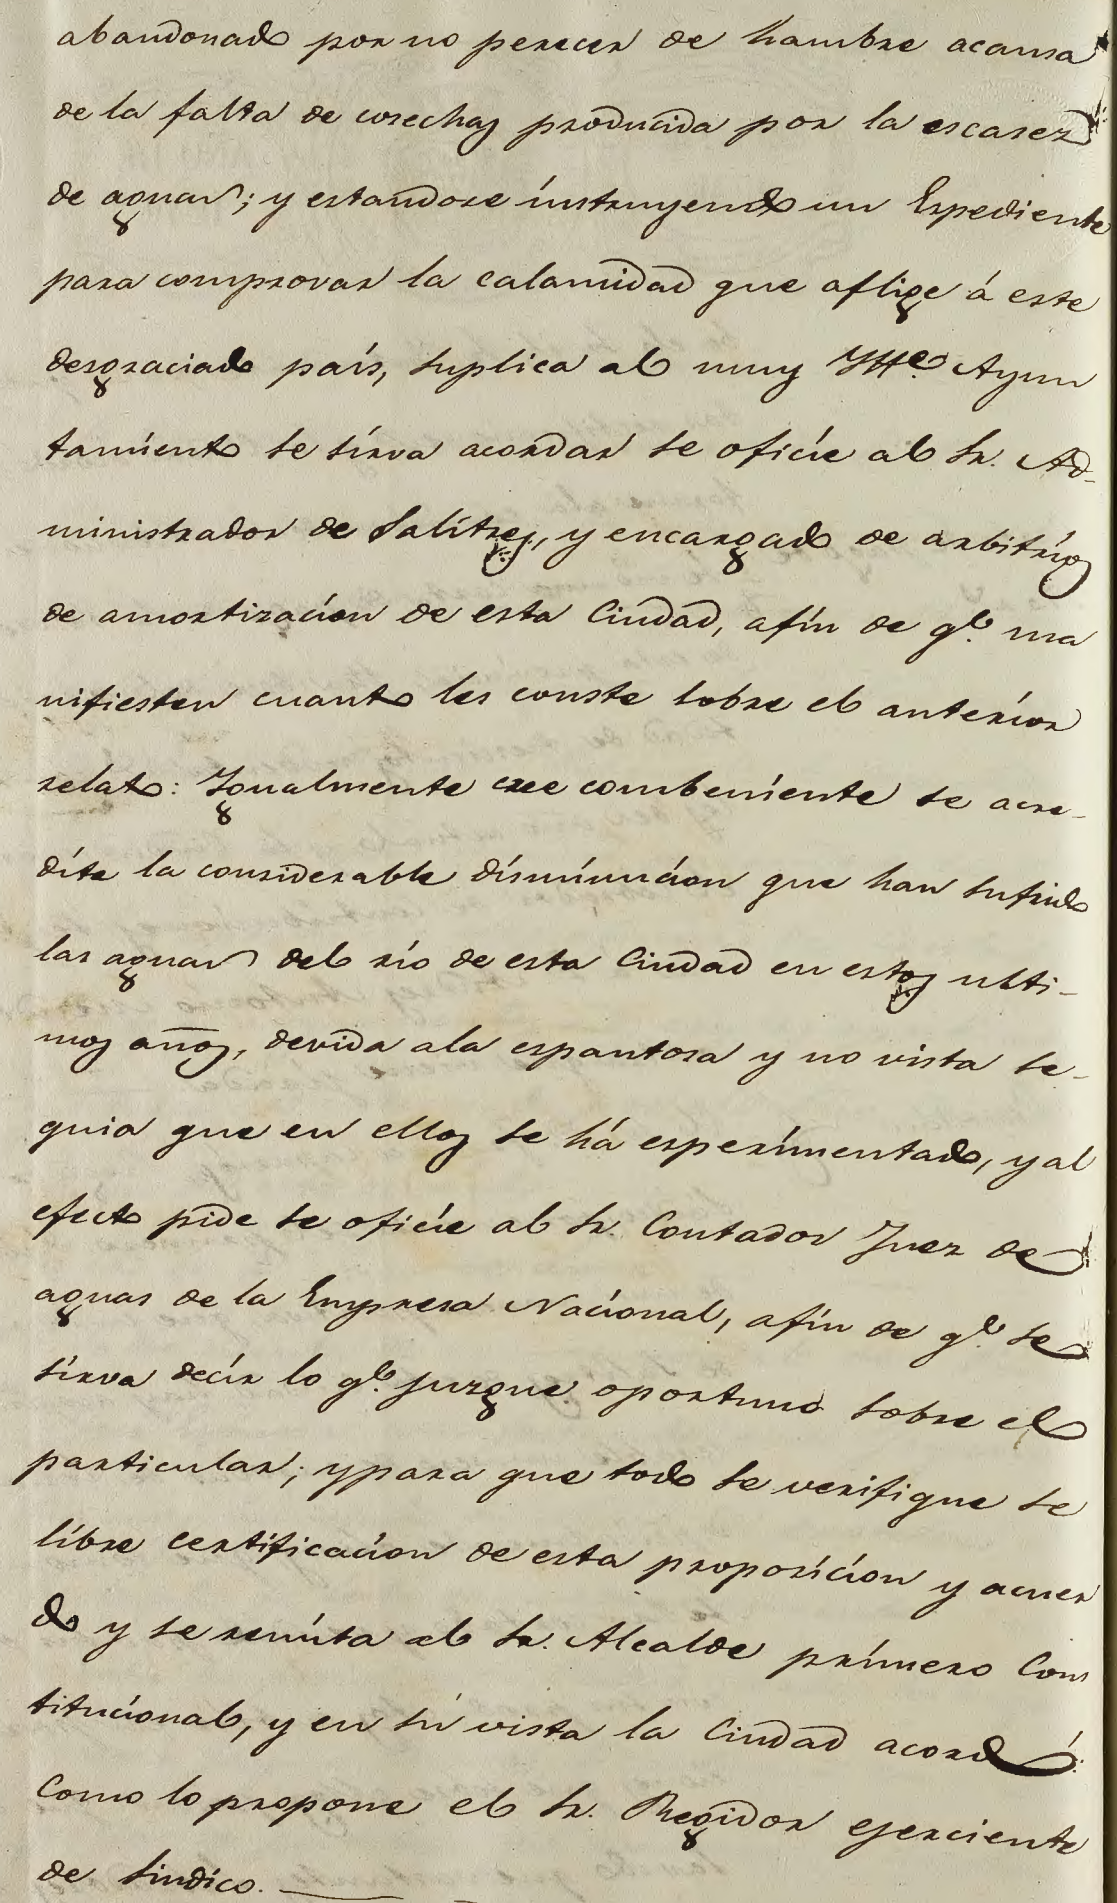 abandonado por no perecer de hambre acausa
de la falta de cosechas producida por la escasez
de aguas; y estandose instruyendo un Espediente
para comprovar la calamidad que aflige á este
desgraciado país, suplica al muy Ytte. Ayun
tamiento se sirva acordar se oficie al Sr. Ad-
ministrador de Salitres, y encargado de arbitrios
de amortizacion de esta Ciudad, afin de qe. ma
nifiesten cuanto les conste sobre el anterior
relato: Igualmente cree combeniente se acre-
dite la considerable disminucion que han sufrido
las aguas del rio de esta Ciudad en estos ulti-
mos años, devida ala espantosa y no vista se-
quia que en ellos se há esperimentado, y al
efecto pide se oficie al Sr. Contador Juez de
aguas de la Empresa Nacional, afin de qe. se
sirva decir lo qe. juzgue oportuno sobre el
particular; ypara que todo se verifique se
libre certificacion de esta proposicion y acuer
do y se remita al Sr. Alcalde primero Cons
titucional, y en su vista la Ciudad acordó:
Como lo propone el Sr. Regidor ejerciente
de Sindico.